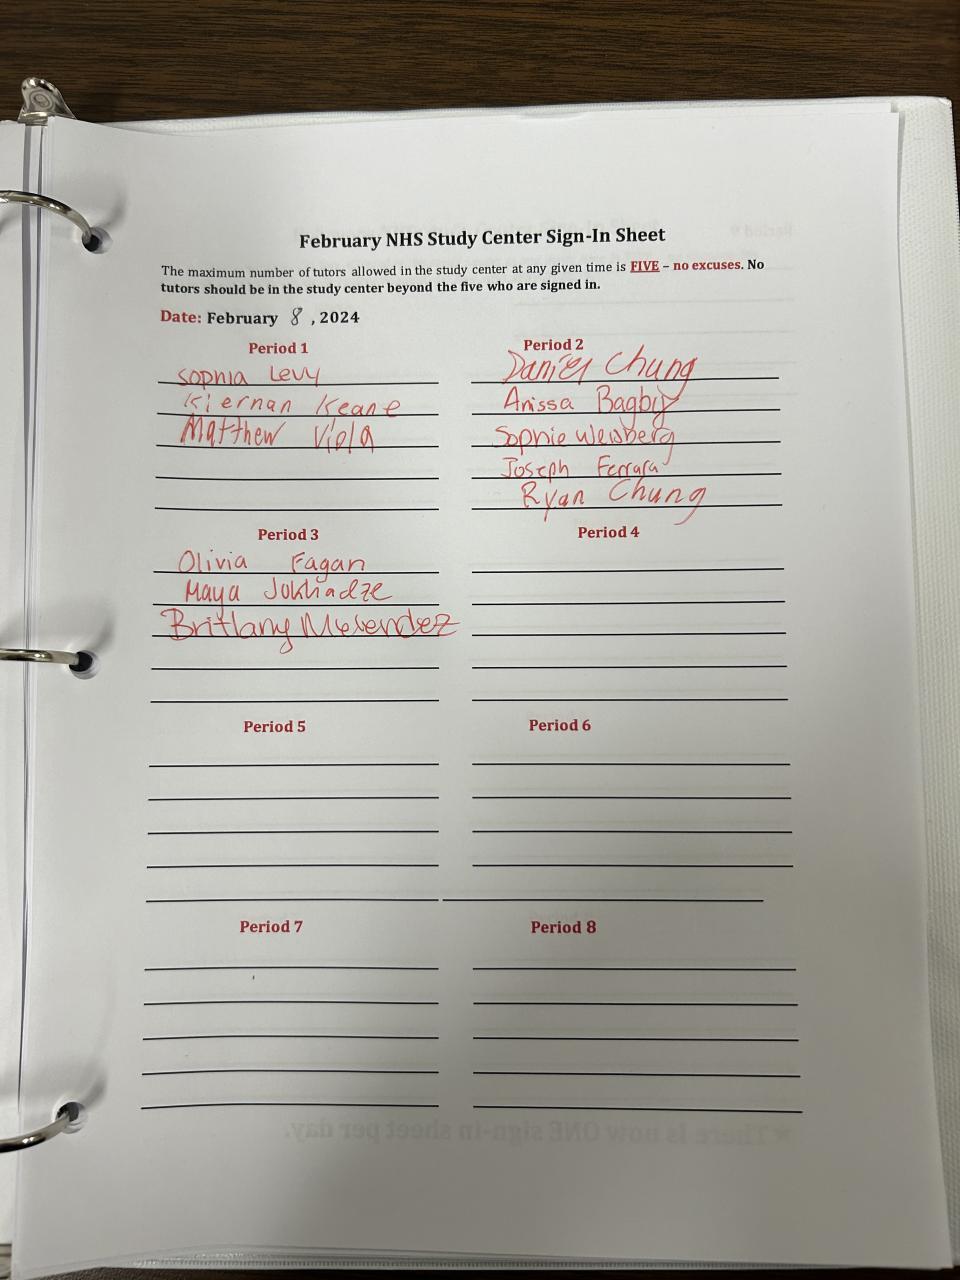 February NHS Study Center Sign-In Sheet
The maximum number of tutors allowed in the study center at any given time is FIVE – no excuses. No
tutors should be in the study center beyond the five who are signed in.
Date: February 8, 2024
Period 1
Sophia Levy
Kiernan Keane
Matthew Viola
Period 2
Daniel Chung
Anissa Bagby
Sophie Weisberg
Joseph Ferrara
Ryan Chung
Period 3
Olivia Fagan
Maya Jokhadze
Brittany
Period 4
Period 5
Period 6
Period 7
Period 8
★There is now ONE sign-in sheet per day.